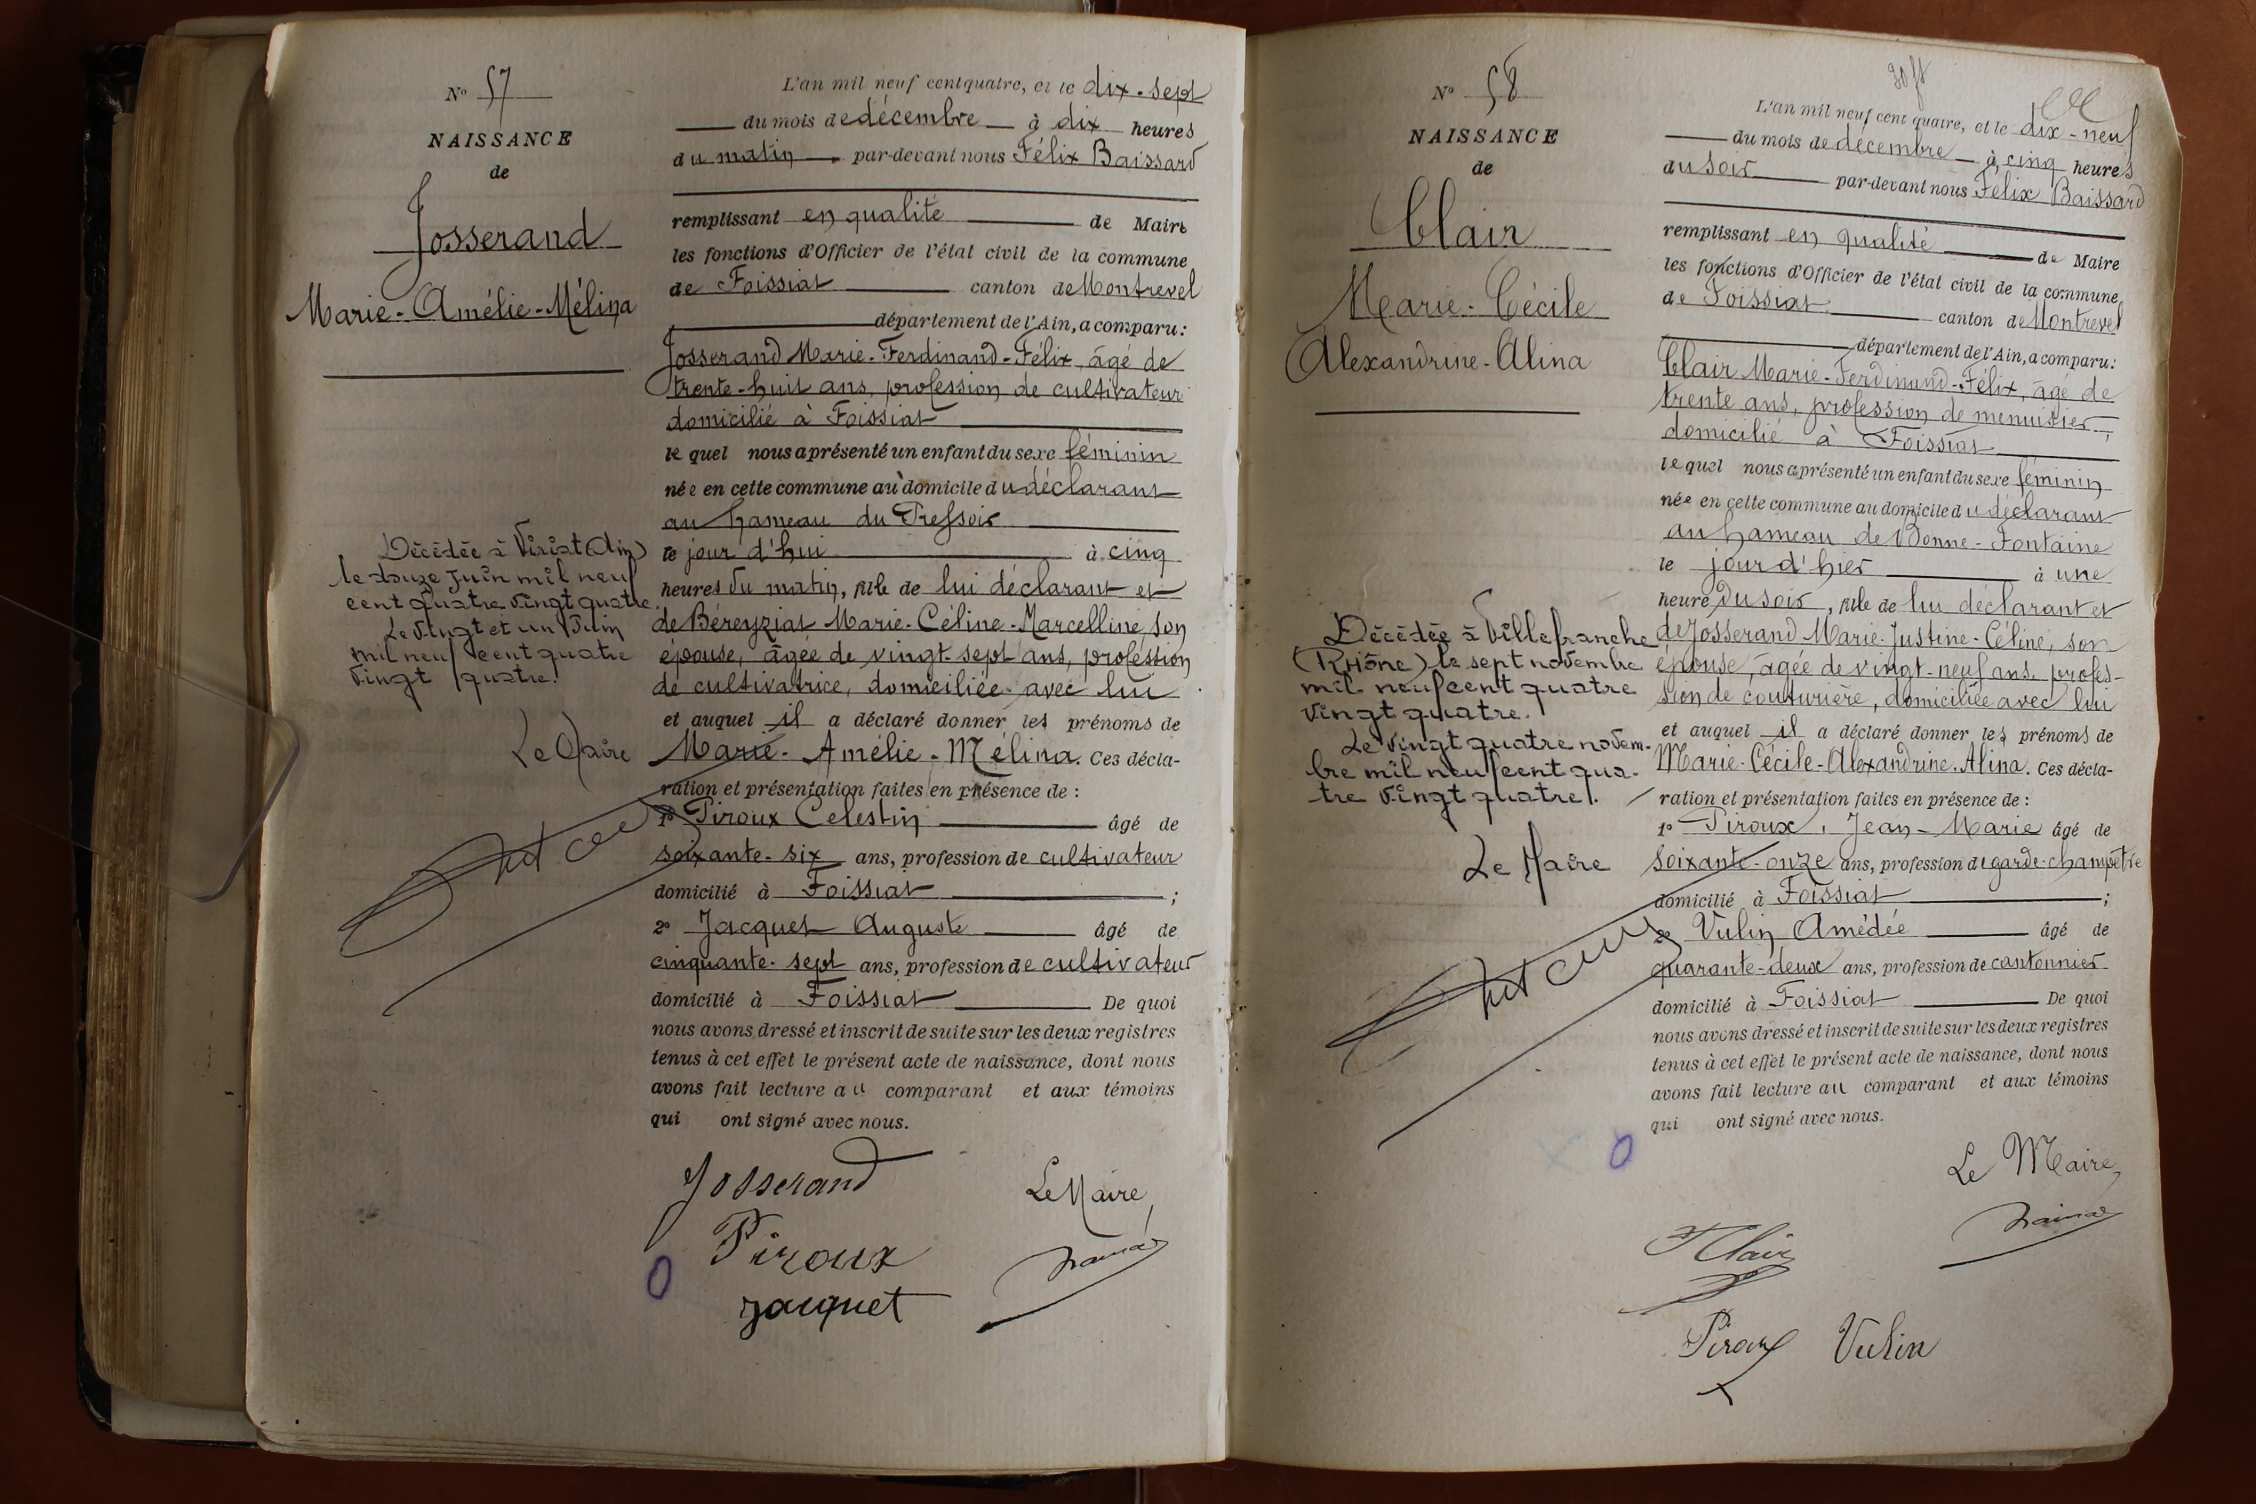 N° 57
NAISSANCE
de
Josserand
Marie-Amélie-Mélina
Décédée à Viriat (Ain)
le douze Juin mil neuf
cent quatre vingt quatre.
Le vingt et un Juin
mil neuf cent quatre
vingt quatre.
Le Maire
L'an mil neuf cent quatre, et le dix-sept
du mois de décembre à dix heures
du matin par-devant nous Félix Baissard
remplissant en qualité de Maire
les fonctions d'Officier de l'état civil de la commune
de Foissiat canton de Montrevel
département de l'Ain, a comparu:
Josserand Marie-Ferdinand-Félix, âgé de
trente-huit ans, profession de cultivateur
domicilié à Foissiat
lequel nous a présenté un enfant du sexe féminin
née en cette commune au domicile du déclarant
au hameau du Pressoir
le jour d'hui à cinq
heures du matin, fille de lui déclarant et
de Béreyziat Marie-Céline-Marcelline, son
épouse, âgée de vingt-sept ans, profession
de cultivatrice, domiciliée avec lui
et auquel il a déclaré donner les prénoms de
Marie-Amélie-Mélina. Ces décla-
ration et présentation faites en présence de :
1° Piroux Célestin âgé de
soixante-six ans, profession de cultivateur
domicilié à Foissiat ;
2° Jacquet Auguste âgé de
cinquante-sept ans, profession de cultivateur
domicilié à Foissiat De quoi
nous avons dressé et inscrit de suite sur les deux registres
tenus à cet effet le présent acte de naissance, dont nous
avons fait lecture au comparant et aux témoins
qui ont signé avec nous.
Josserand
Le Maire,
Piroux
Jacquet
N° 58
NAISSANCE
de
Clair
Marie-Cécile
Alexandrine-Alina
Décédée à Villefranche
(Rhône) le sept novembre
mil neuf cent quatre
vingt quatre.
Le vingt quatre novem-
bre mil neuf cent qua-
tre vingt quatre.
Le Maire
L'an mil neuf cent quatre, et le dix-neuf
du mois de décembre à cinq heures
du soir par-devant nous Félix Baissard
remplissant en qualité de Maire
les fonctions d'Officier de l'état civil de la commune
de Foissiat canton de Montrevel
département de l'Ain, a comparu:
Clair Marie-Ferdinand-Félix, âgé de
trente ans, profession de menuisier,
domicilié à Foissiat
lequel nous a présenté un enfant du sexe féminin
née en cette commune au domicile du déclarant
au hameau de Bonne-Fontaine
le jour d'hier à une
heure du soir, fille de lui déclarant et
de Josserand Marie-Justine-Céline, son
épouse, âgée de vingt-neuf ans, profes-
sion de couturière, domiciliée avec lui
et auquel il a déclaré donner les prénoms de
Marie-Cécile-Alexandrine-Alina. Ces décla-
ration et présentation faites en présence de :
1° Piroux, Jean-Marie âgé de
soixante-onze ans, profession de garde-champêtre
domicilié à Foissiat ;
2° Vulin Amédée âgé de
quarante-deux ans, profession de cantonnier
domicilié à Foissiat De quoi
nous avons dressé et inscrit de suite sur les deux registres
tenus à cet effet le présent acte de naissance, dont nous
avons fait lecture au comparant et aux témoins
qui ont signé avec nous.
Le Maire,
F Clair
Piroux Vulin